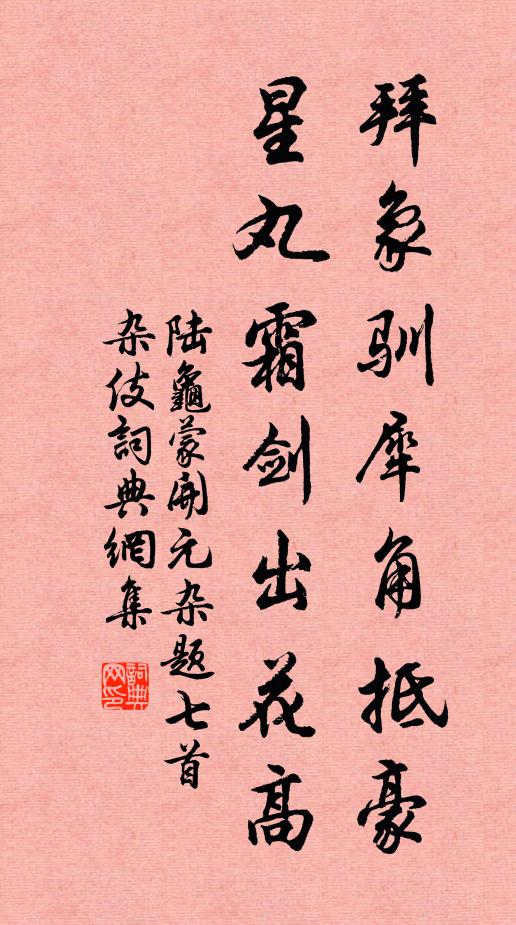 拜象驯犀角抵豪
星丸霜剑出花高
陆龜蒙開元杂题七首
杂伎詞典網集
詞典网印